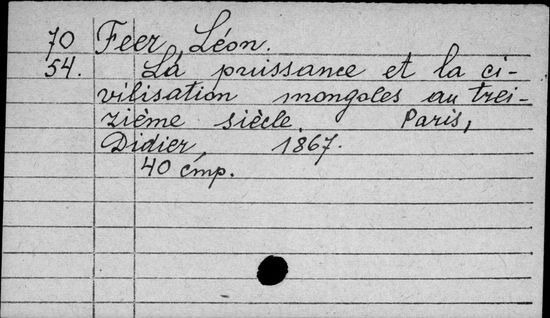 70 Feer, Léon.
54. La puissance et la ci-
vilisation mongoles au trei-
zième siècle. Paris,
Didier, 1867.
40 стр.